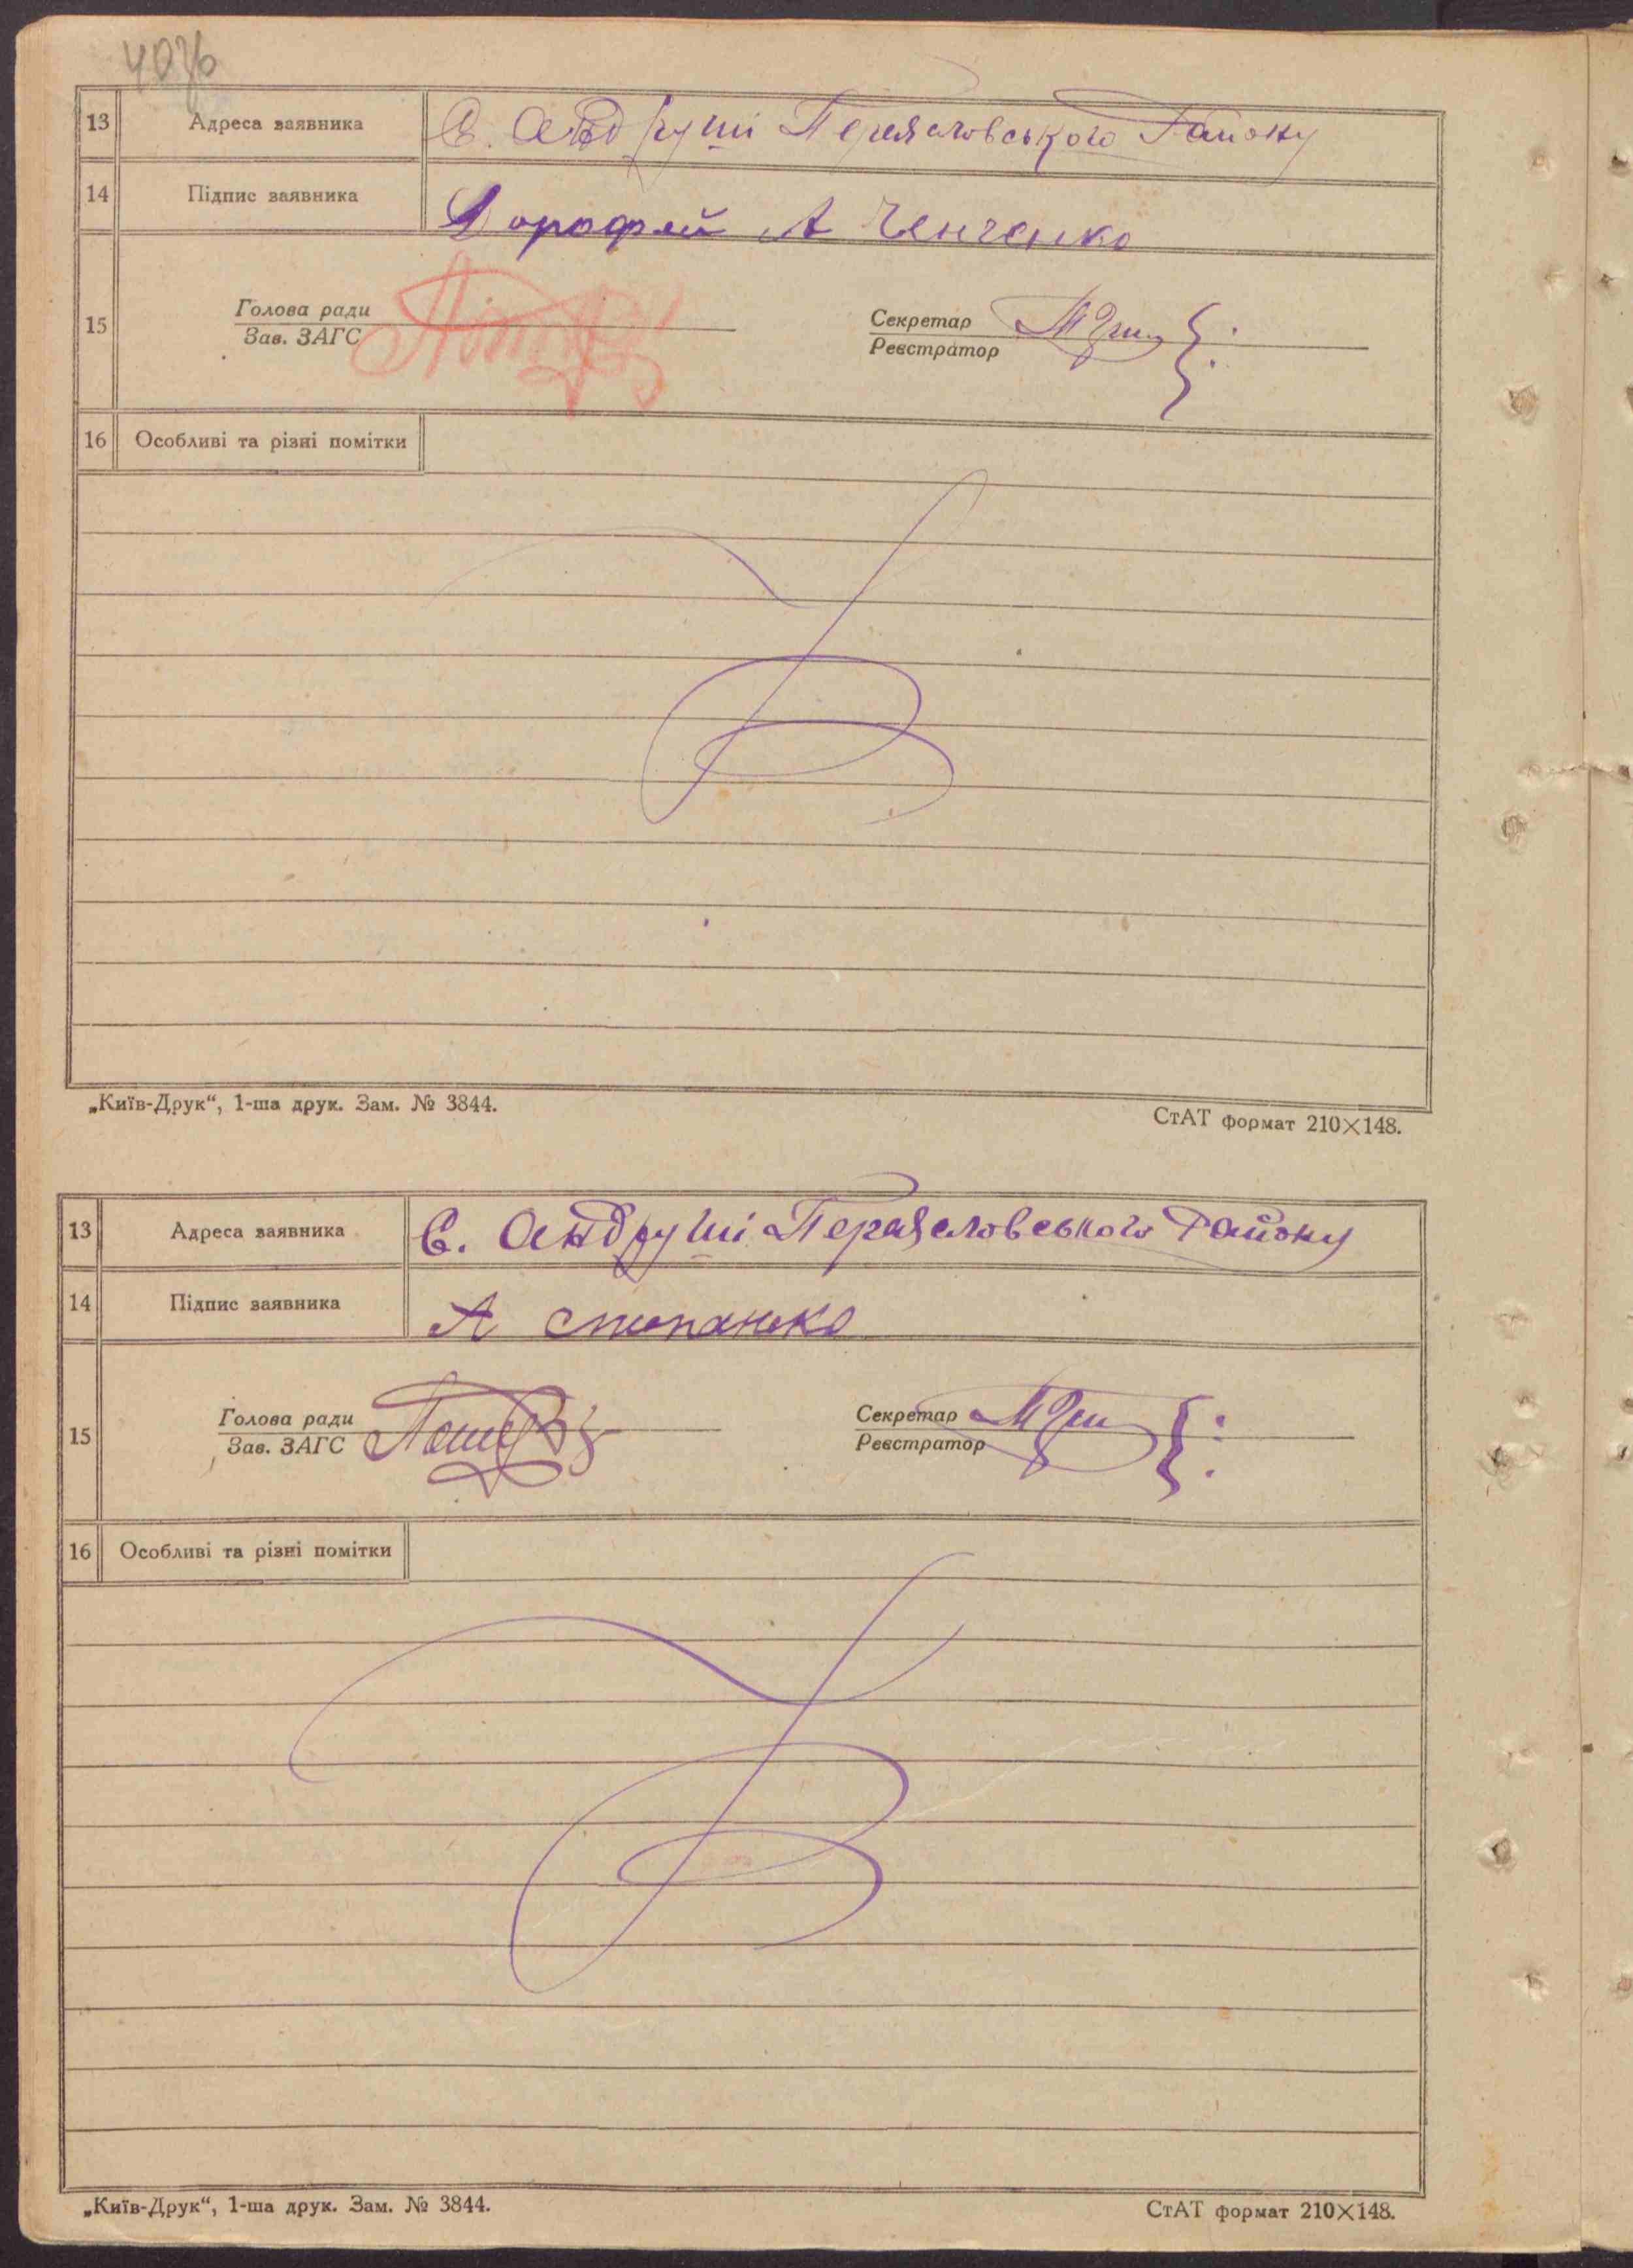 13 Адреса заявника С. Андруші Переяславського Району
14 Підпис заявника Дорофей А Ченченко
15 Голова ради Секретар
Зав. ЗАГС Реєстратор
16 Особливі та різні помітки
„Київ-Друк“, 1-ша друк. Зам. № 3844. СтАТ формат 210×148.
13 Адреса заявника С. Андруші Переяславського Району
14 Підпис заявника А степанько
15 Голова ради Секретар
Зав. ЗАГС Реєстратор
16 Особливі та різні помітки
„Київ-Друк“, 1-ша друк. Зам. № 3844. СтАТ формат 210×148.